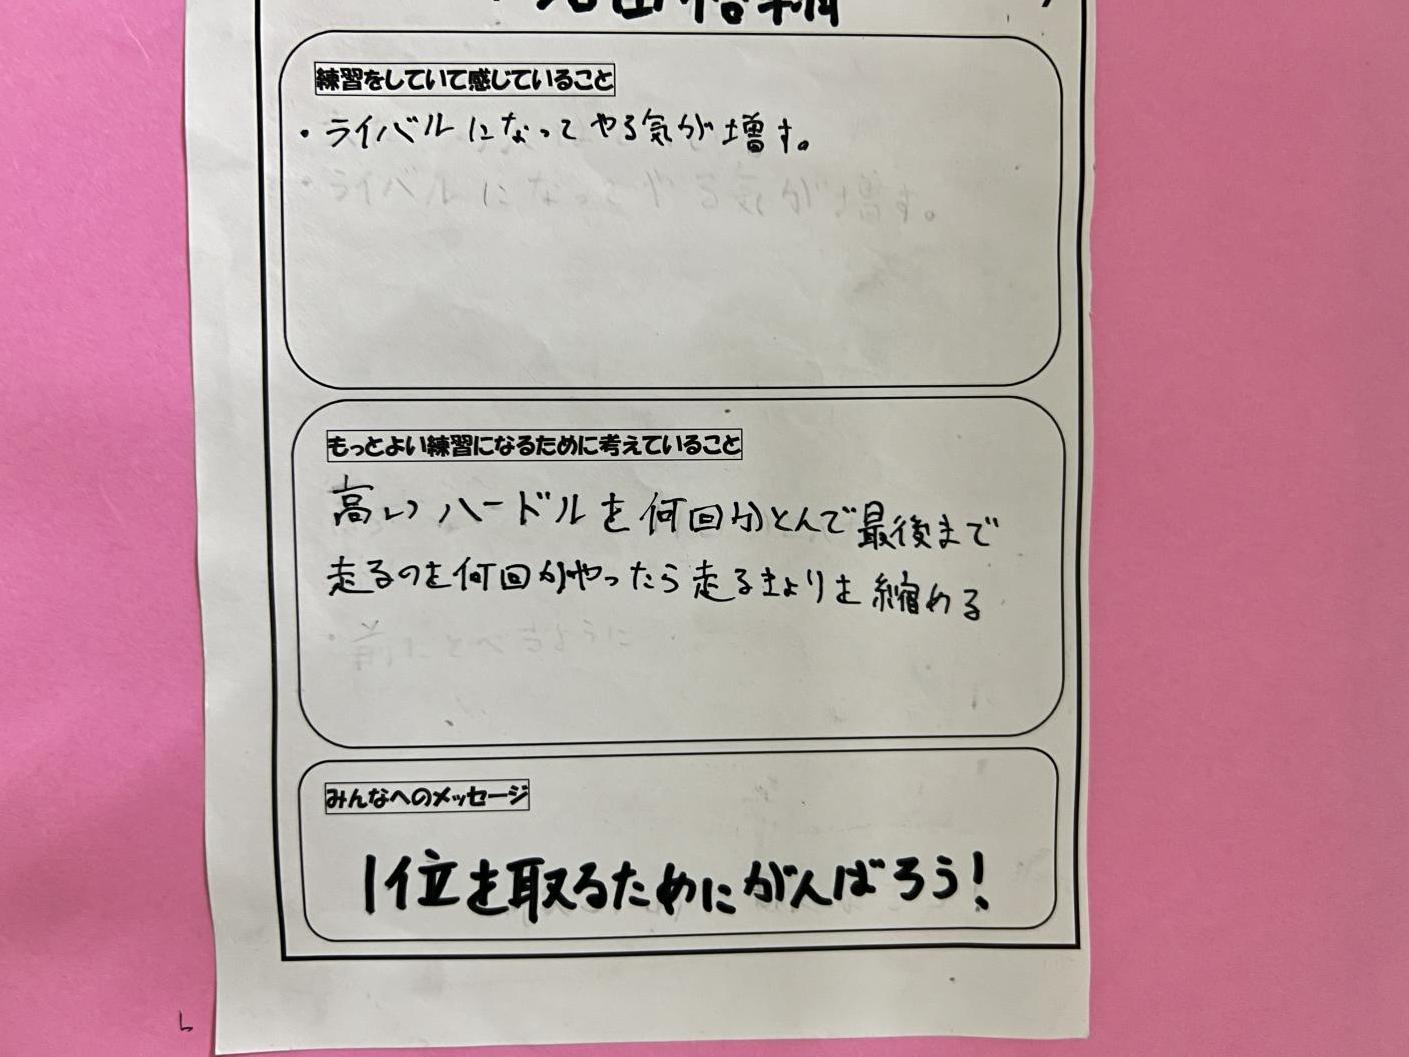 練習をしていて感じていること
・ライバルになってやる気が増す。
・ライバルになってやる気が増す。
もっとよい練習になるために考えていること
高いハードルを何回かとんで最後まで
走るのを何回かやったら走るきょりを縮める
みんなへのメッセージ
1位を取るためにがんばろう!